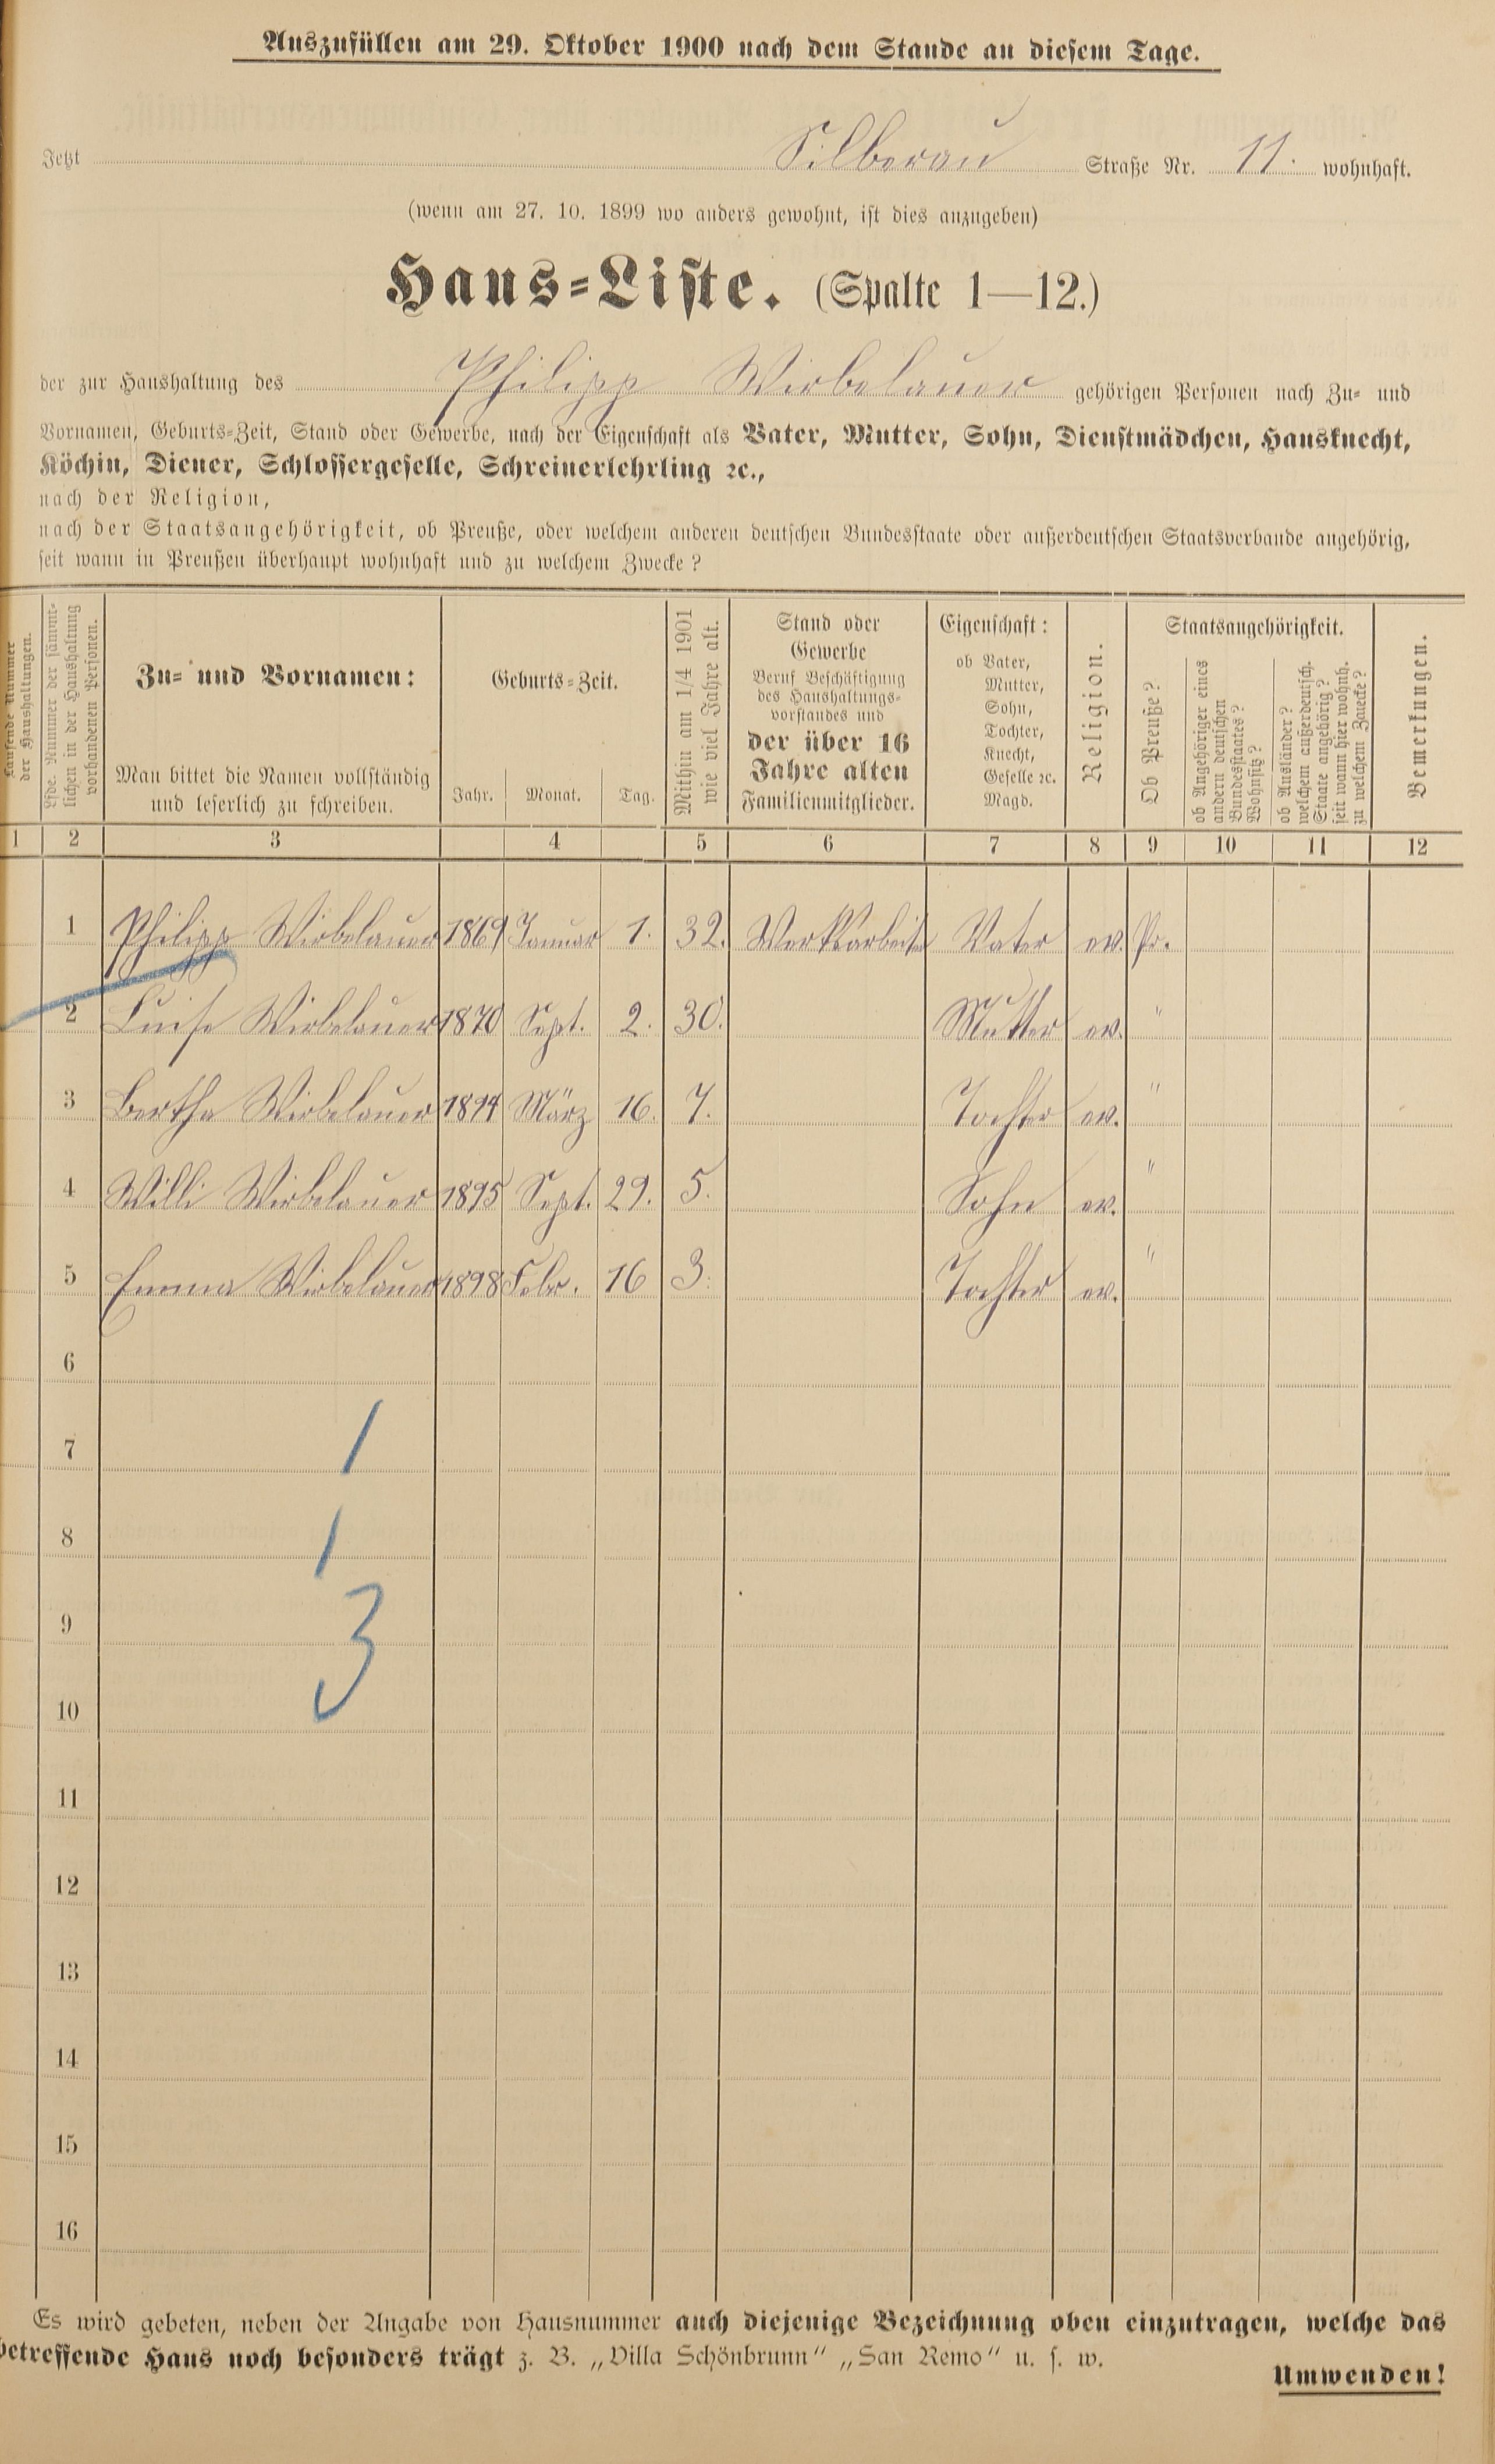 Auszufüllen am 29. Oktober 1900 nach dem Stande an diesem Tage.
Jetzt Silberau Straße Nr. 11. wohnhaft.
(wenn am 27. 10. 1899 wo anders gewohnt, ist dies anzugeben)
Haus-Liste. (Spalte 1—12.)
der zur Haushaltung des Philipp Wirbelauer gehörigen Personen nach Zu- und
Vornamen, Geburts-Zeit, Stand oder Gewerbe, nach der Eigenschaft als Vater, Mutter, Sohn, Dienstmädchen, Hausknecht,
Köchin, Diener, Schlossergeselle, Schreinerlehrling ꝛc.,
nach der Religion,
nach der Staatsangehörigkeit, ob Preuße, oder welchem anderen deutschen Bundesstaate oder außerdeutschen Staatsverbande angehörig,
seit wann in Preußen überhaupt wohnhaft und zu welchem Zwecke?
Laufende Nummer
der Haushaltungen.
Lfde. Nummer der sämmt-
lichen in der Haushaltung
vorhandenen Personen.
Zu- und Vornamen:
Man bittet die Namen vollständig
und leserlich zu schreiben.
Geburts-Zeit.
Jahr. Monat. Tag.
Mithin am 1/4 1901
wie viel Jahre alt.
Stand oder
Gewerbe
Beruf Beschäftigung
des Haushaltungs-
vorstandes und
der über 16
Jahre alten
Familienmitglieder.
Eigenschaft:
ob Vater,
Mutter,
Sohn,
Tochter,
Knecht,
Geselle ꝛc.
Magd.
Religion.
Staatsangehörigkeit.
Ob Preuße?
ob Angehöriger eines
andern deutschen
Bundesstaates?
Wohnsitz?
ob Ausländer?
welchem außerdeutsch.
Staate angehörig?
seit wann hier wohnh.
zu welchem Zwecke?
Bemerkungen.
1 2 3 4 5 6 7 8 9 10 11 12
1 Philipp Wirbelauer 1869 Januar 1. 32. Werksarbeiter Vater ev. Pr.
2 Luise Wirbelauer 1870 Sept. 2. 30. Mutter ev. "
3 Bertha Wirbelauer 1894 März 16. 7. Tochter ev. "
4 Willi Wirbelauer 1895 Sept. 29. 5. Sohn ev. "
5 Emma Wirbelauer 1898 Febr. 16 3. Tochter ev. "
6
7 1
8 1
9 3
10
11
12
13
14
15
16
Es wird gebeten, neben der Angabe von Hausnummer auch diejenige Bezeichnung oben einzutragen, welche das
betreffende Haus noch besonders trägt z. B. „Villa Schönbrunn“ „San Remo“ u. s. w.
Umwenden!